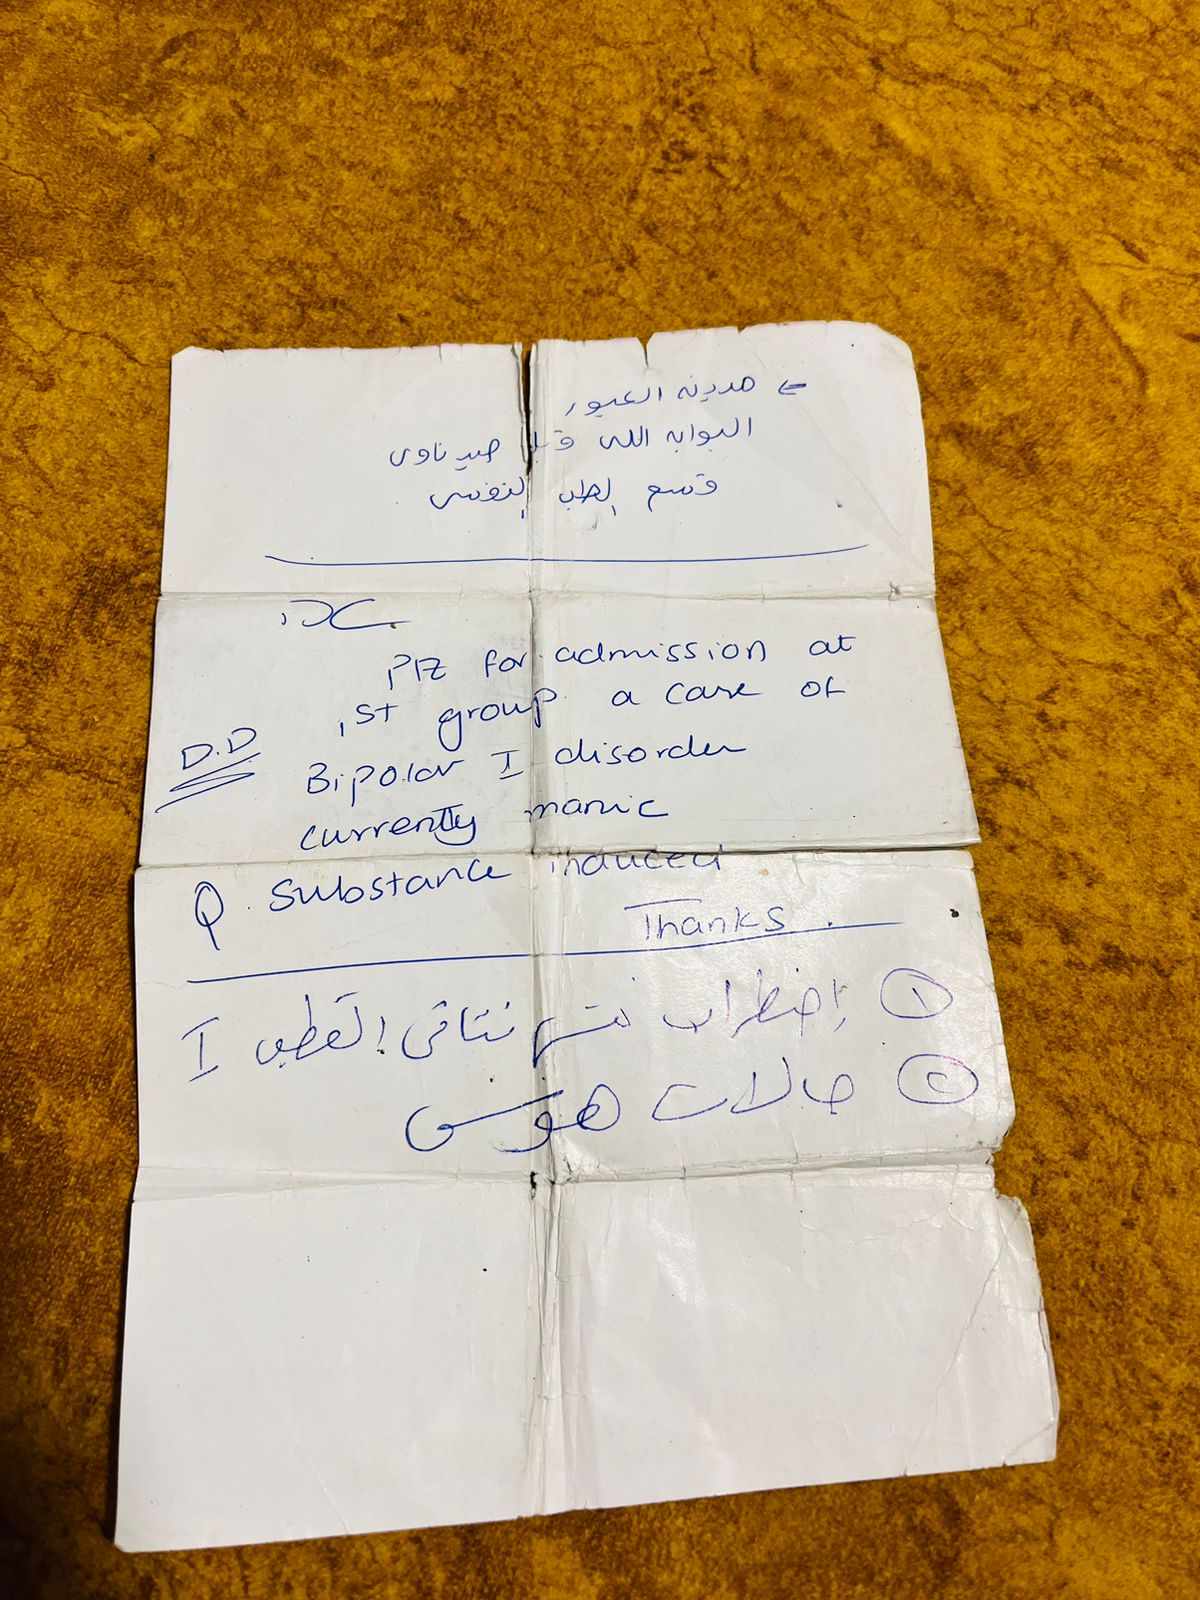 مدينه العبور
البوابه اللى قبل صيدناوى
قسم الطب النفسى
Plz for admission at
1st group a case of
D.D Bipolar I disorder
currently manic
substance induced
Thanks.
① إضطراب القطبى I
② حالات هوس